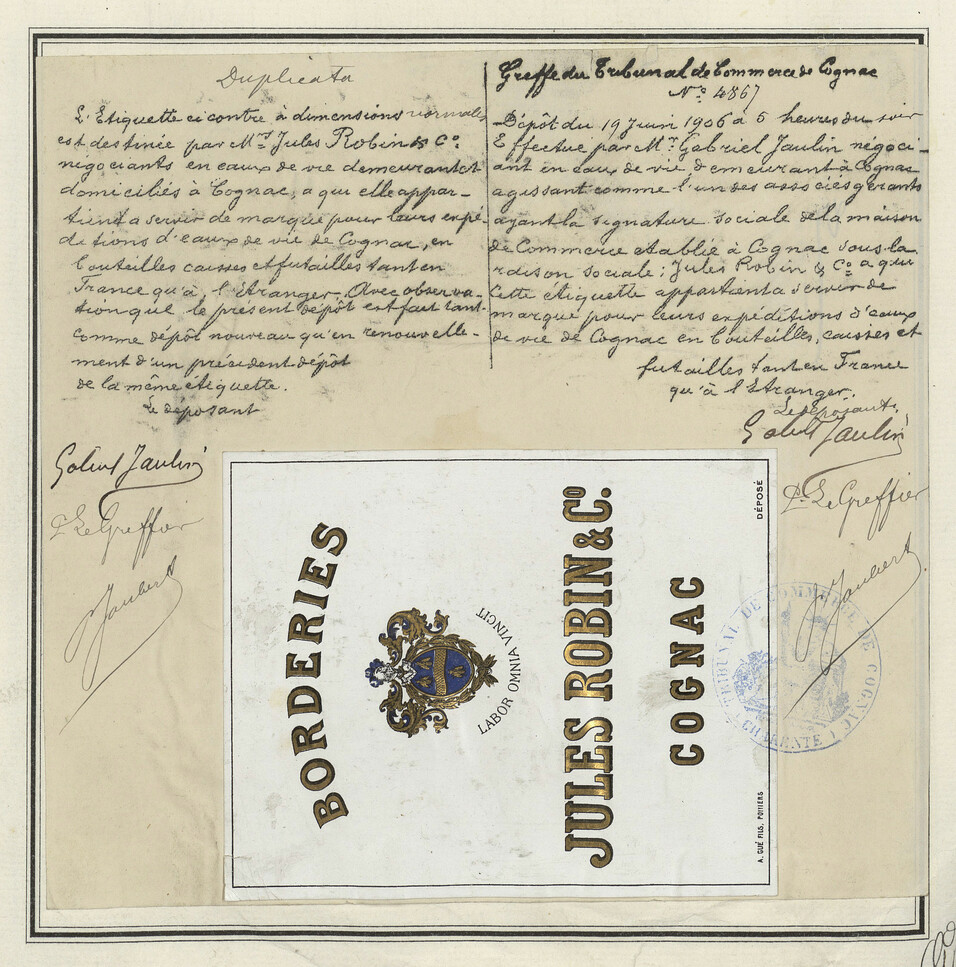 Duplicata
L'Etiquette ci contre à dimensions normales
est destinée par Mrs Jules Robin & Co.
négociants en eaux de vie demeurant et
domiciliés à Cognac, a qui elle appar-
tient a servir de marque pour leurs expé
ditions d'eaux de vie de Cognac, en
bouteilles caisses et futailles tant en
France qu'à l'étranger. Avec observa-
tion que le présent dépôt est fait tant
comme dépôt nouveau qu'en renouvelle-
ment d'un précédent dépôt
de la même étiquette.
Le déposant
Gabriel Jaulin
P. Le Greffier
Jaubert
Greffe du Tribunal de Commerce de Cognac
No. 4867
Dépôt du 19 Juin 1906 à 5 heures du soir
Effectué par Mr. Gabriel Jaulin négoci-
ant en eaux de vie, demeurant à Cognac
agissant comme l'un des associés gérants
ayant la signature sociale de la maison
de Commerce etablie à Cognac sous la
raison sociale: Jules Robin & Co. a qui
cette étiquette appartient a servir de
marque pour leurs expéditions d'eaux
de vie de Cognac en bouteilles, caisses et
futailles tant en France
qu'à l'Etranger.
Le déposant.
Gabriel Jaulin
P. Le Greffier
Jaubert
BORDERIES
LABOR OMNIA VINCIT
JULES ROBIN & Co.
COGNAC
DÉPOSÉ
A. GUÉ FILS, POITIERS
TRIBUNAL DE COMMERCE DE COGNAC
(CHARENTE)